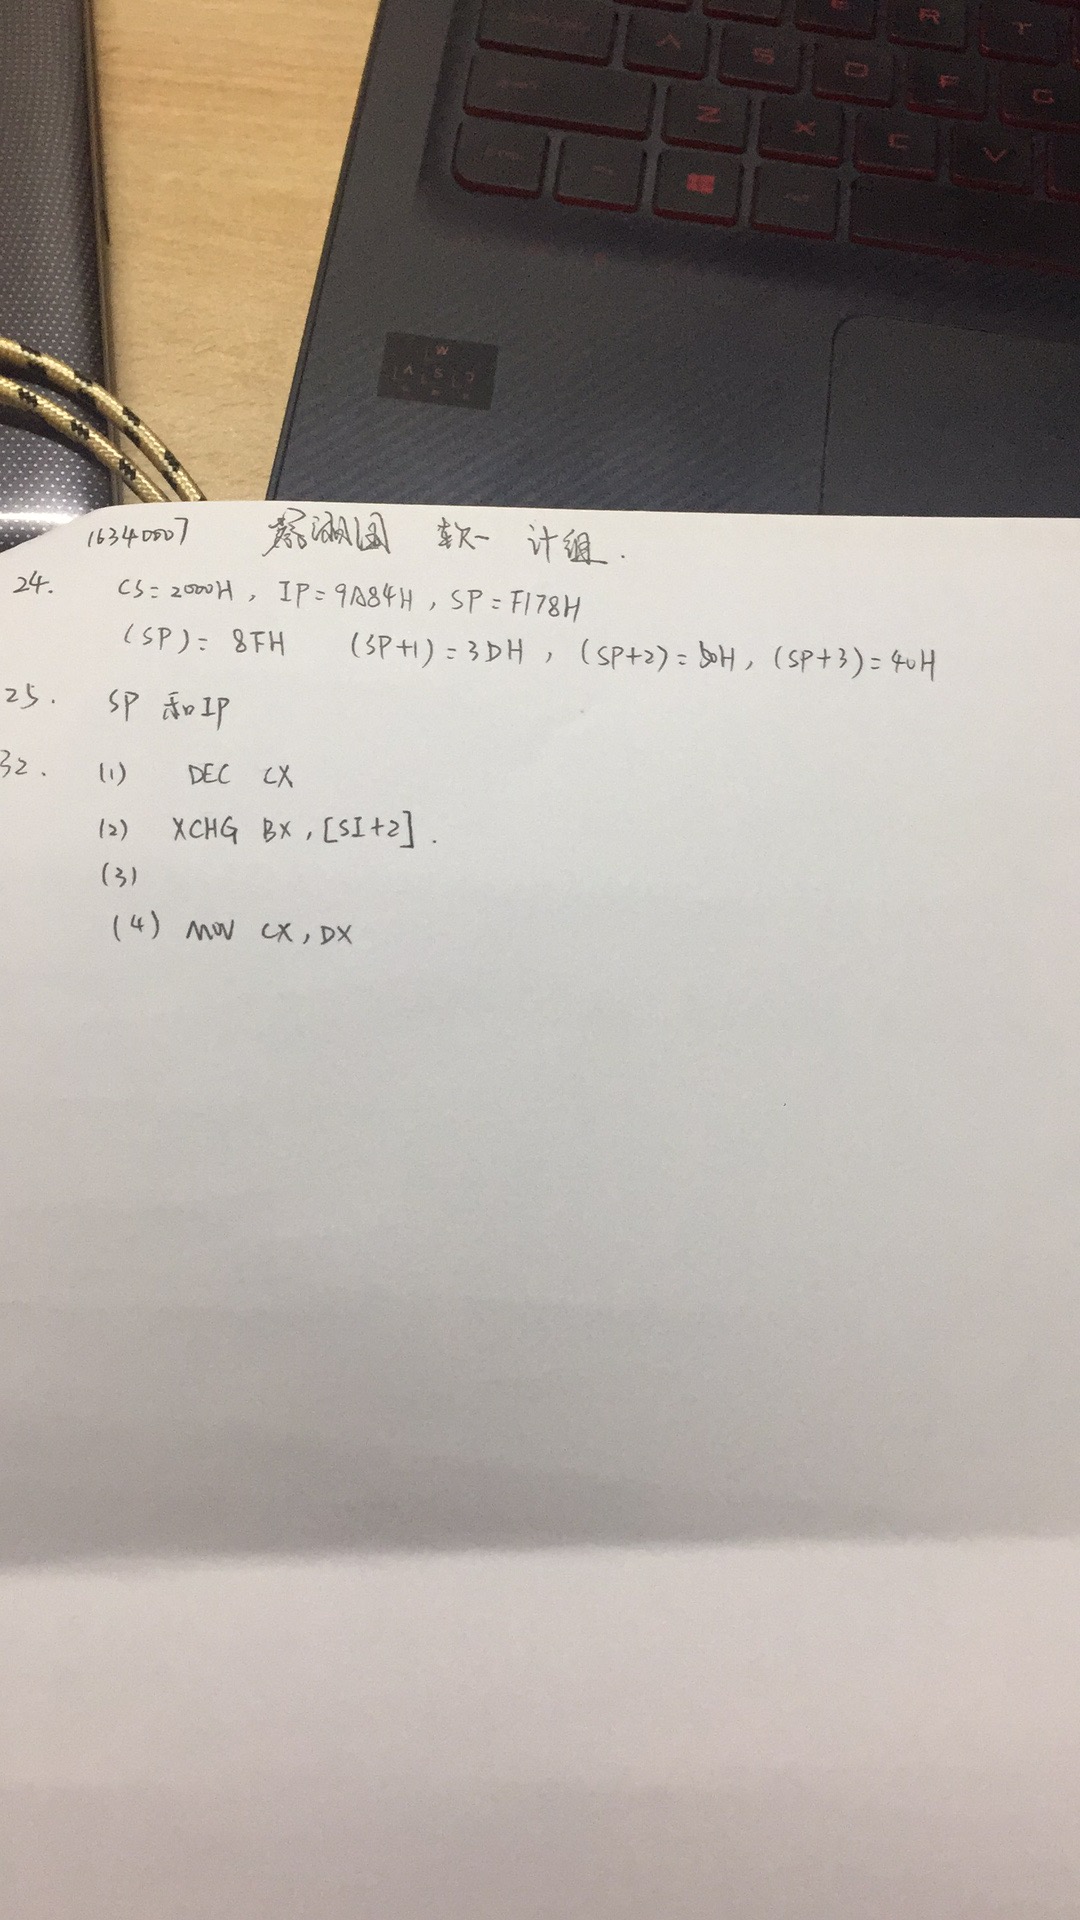 E R T
A S D F G
Z X C V
W
A S D
16340007 蔡湘国 软一 计组.
24. CS=2000H, IP=9A84H, SP=F178H
(SP)=8FH (SP+1)=3DH, (SP+2)=50H, (SP+3)=40H
25. SP和IP
32. (1) DEC CX
(2) XCHG BX,[SI+2].
(3)
(4) MOV CX,DX